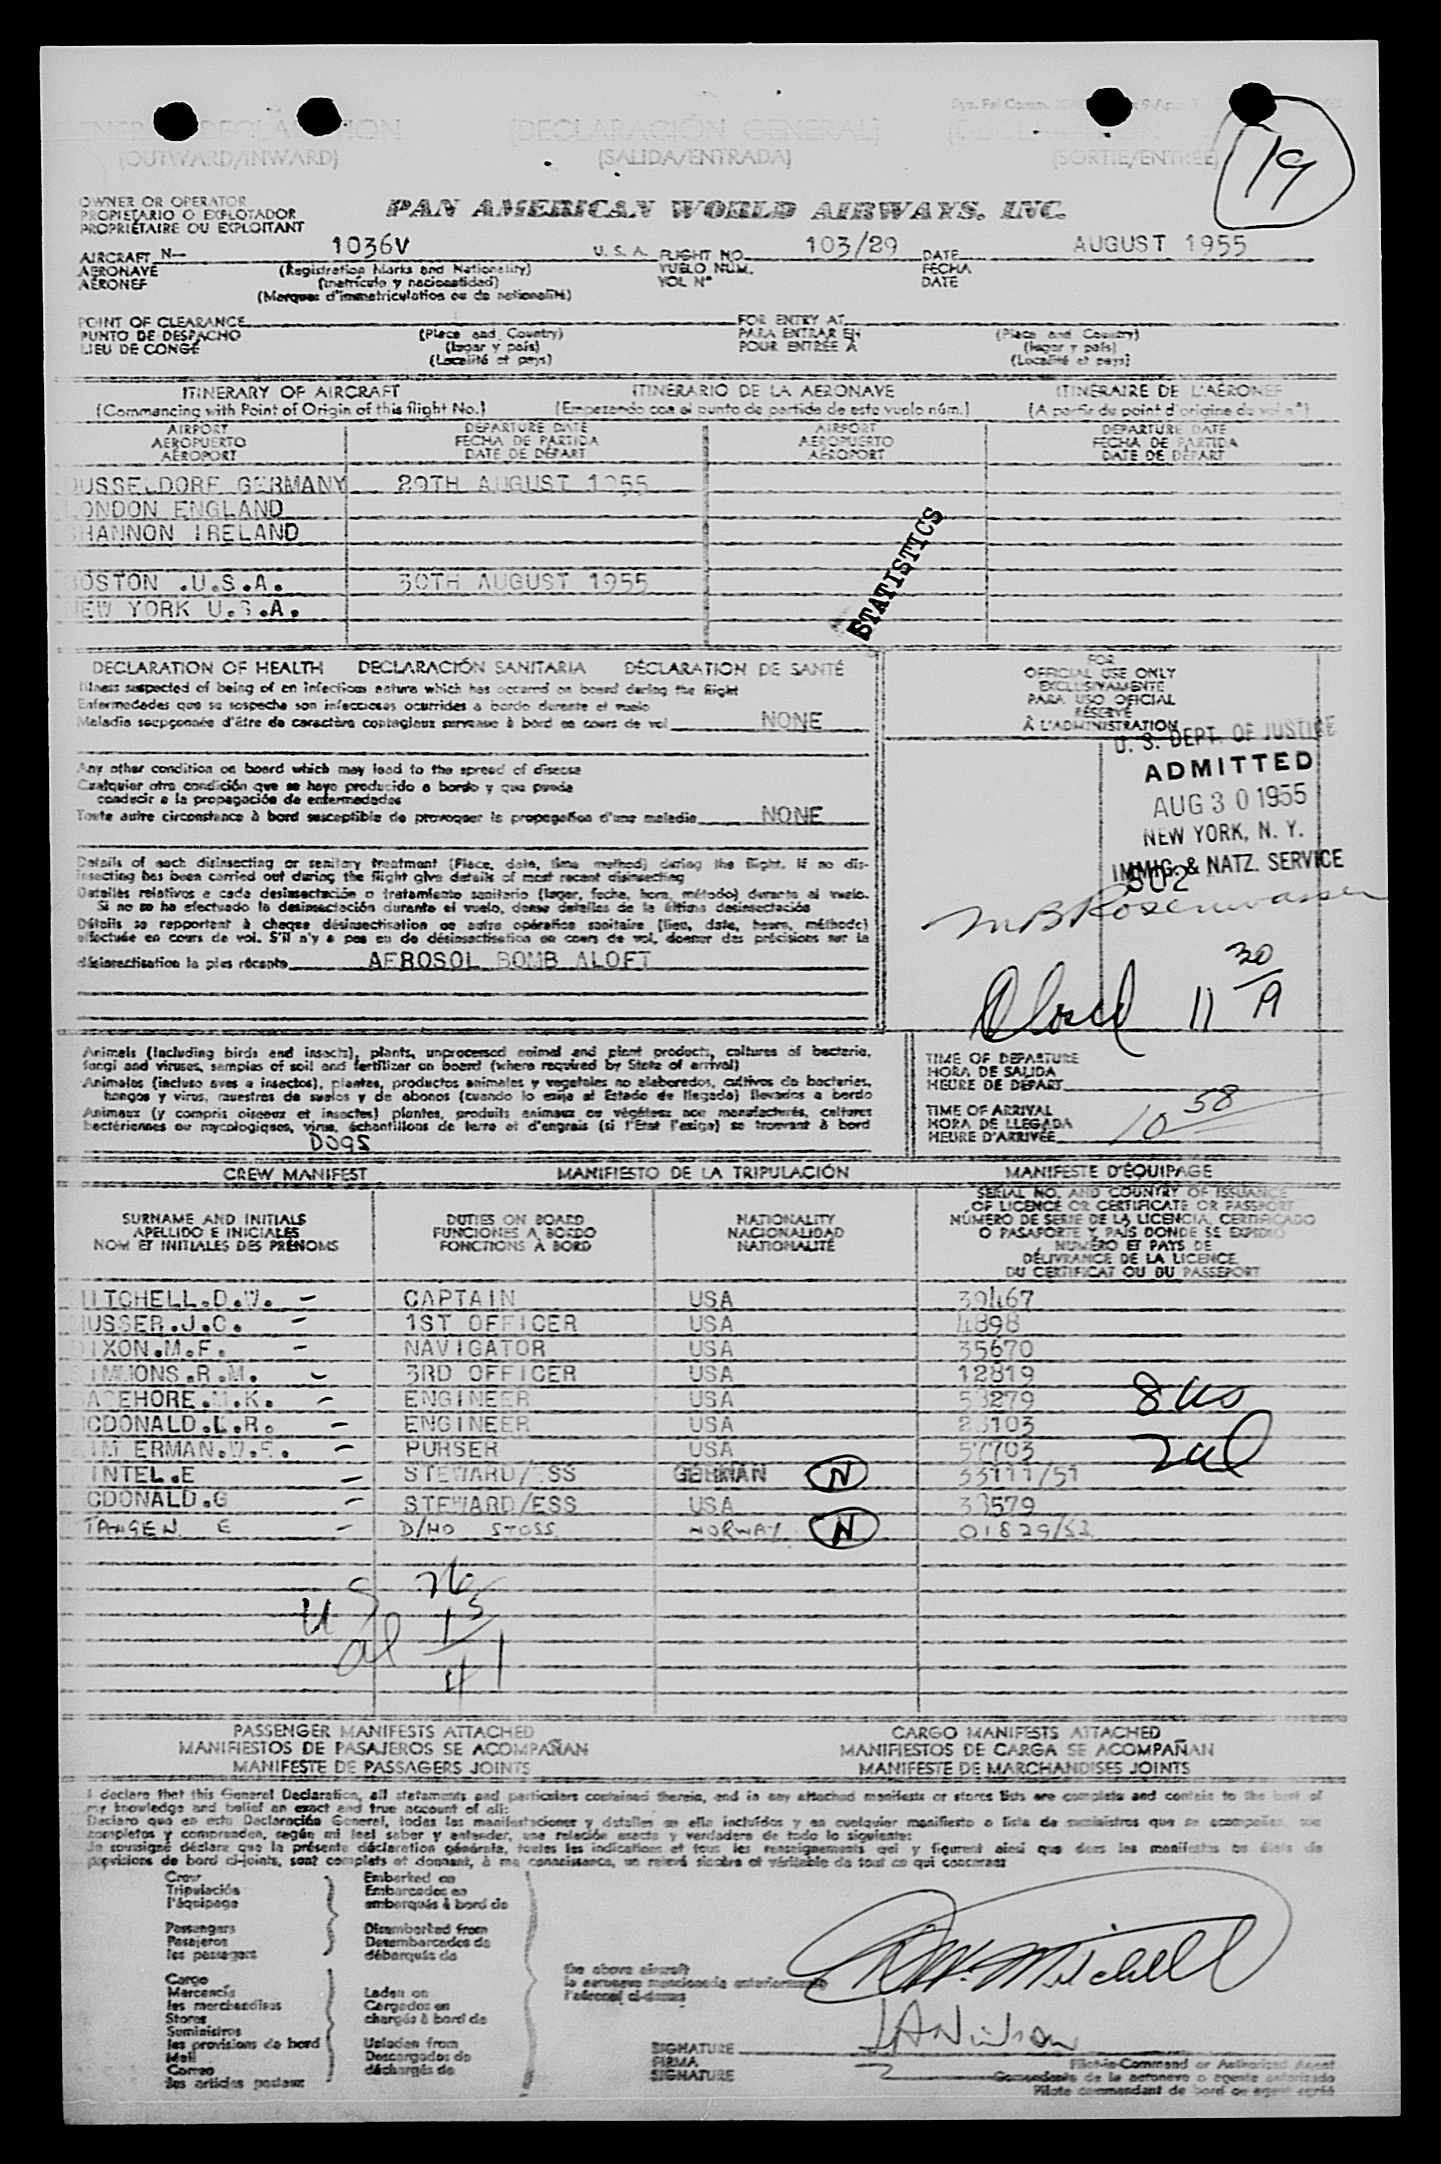 (DECLARACIÓN GENERAL)
(OUTWARD/INWARD) (SALIDA/ENTRADA) (SORTIE/ENTRÉE)
19
OWNER OR OPERATOR
PROPIETARIO O EXPLOTADOR
PROPRIÉTAIRE OU EXPLOITANT
PAN AMERICAN WORLD AIRWAYS, INC.
AIRCRAFT N— 1036V U. S. A. FLIGHT NO. 103/29 DATE AUGUST 1955
AERONAVE (Registration Marks and Nationality) VUELO NÚM. FECHA
AÉRONEF (matrícula y nacionalidad) VOL N° DATE
(Marques d'immatriculation ou de nationalité)
POINT OF CLEARANCE FOR ENTRY AT
PUNTO DE DESPACHO (Place and Country) PARA ENTRAR EN (Place and Country)
LIEU DE CONGÉ (lugar y país) POUR ENTRÉE À (lugar y país)
(Localité et pays) (Localité et pays)
ITINERARY OF AIRCRAFT ITINERARIO DE LA AERONAVE ITINÉRAIRE DE L'AÉRONEF
(Commencing with Point of Origin of this flight No.) (Empezando con el punto de partida de este vuelo núm.) (A partir du point d'origine du vol n°)
AIRPORT DEPARTURE DATE AIRPORT DEPARTURE DATE
AEROPUERTO FECHA DE PARTIDA AEROPUERTO FECHA DE PARTIDA
AÉROPORT DATE DE DÉPART AÉROPORT DATE DE DÉPART
DUSSELDORF GERMANY 29TH AUGUST 1955
LONDON ENGLAND
SHANNON IRELAND
STATISTICS
BOSTON .U.S.A. 30TH AUGUST 1955
NEW YORK U.S.A.
DECLARATION OF HEALTH DECLARACIÓN SANITARIA DÉCLARATION DE SANTÉ
Illness suspected of being of an infectious nature which has occurred on board during the flight
Enfermedades que se sospecha son infecciosas ocurridas a bordo durante el vuelo
Maladie soupçonnée d'être de caractère contagieux survenue à bord en cours de vol NONE
Any other condition on board which may lead to the spread of disease
Cualquier otra condición que se haya producido a bordo y que pueda
conducir a la propagación de enfermedades
Toute autre circonstance à bord susceptible de provoquer la propagation d'une maladie NONE
Details of each disinsecting or sanitary treatment (Place, date, time method) during the flight. If no dis-
insecting has been carried out during the flight give details of most recent disinsecting
Detalles relativos a cada desinsectación o tratamiento sanitario (lugar, fecha, hora, método) durante el vuelo.
Si no se ha efectuado la desinsectación durante el vuelo, dense detalles de la última desinsectación
Détails se rapportant à chaque désinsectisation ou autre opération sanitaire (lieu, date, heure, méthode)
effectuée en cours de vol. S'il n'y a pas eu de désinsectisation en cours de vol, donner des précisions sur la
désinsectisation la plus récente AEROSOL BOMB ALOFT
FOR
OFFICIAL USE ONLY
EXCLUSIVAMENTE
PARA USO OFICIAL
RÉSERVÉ
À L'ADMINISTRATION
U. S. DEPT. OF JUSTICE
ADMITTED
AUG 30 1955
NEW YORK, N. Y.
IMMIG. & NATZ. SERVICE
502
M B Rosenwasser
Closed 11 30/A
Animals (including birds and insects), plants, unprocessed animal and plant products, cultures of bacteria,
fungi and viruses, samples of soil and fertilizer on board (where required by State of arrival)
Animales (incluso aves e insectos), plantas, productos animales y vegetales no elaborados, cultivos de bacterias,
hongos y virus, muestras de suelos y de abonos (cuando lo exija el Estado de llegada) llevados a bordo
Animaux (y compris oiseaux et insectes) plantes, produits animaux ou végétaux non manufacturés, cultures
bactériennes ou mycologiques, virus, échantillons de terre et d'engrais (si l'Etat l'exige) se trouvant à bord
DOGS
TIME OF DEPARTURE
HORA DE SALIDA
HEURE DE DÉPART
TIME OF ARRIVAL
HORA DE LLEGADA
HEURE D'ARRIVÉE 10 58
CREW MANIFEST MANIFIESTO DE LA TRIPULACIÓN MANIFESTE D'ÉQUIPAGE
SURNAME AND INITIALS
APELLIDO E INICIALES
NOM ET INITIALES DES PRÉNOMS
DUTIES ON BOARD
FUNCIONES A BORDO
FONCTIONS À BORD
NATIONALITY
NACIONALIDAD
NATIONALITÉ
SERIAL NO. AND COUNTRY OF ISSUANCE
OF LICENCE OR CERTIFICATE OR PASSPORT
NÚMERO DE SERIE DE LA LICENCIA, CERTIFICADO
O PASAPORTE Y PAÍS DONDE SE EXPIDIÓ
NUMÉRO ET PAYS DE
DÉLIVRANCE DE LA LICENCE
DU CERTIFICAT OU DU PASSEPORT
MITCHELL.D.W. – CAPTAIN USA 39467
MUSSER.J.C. – 1ST OFFICER USA 4898
DIXON.M.F. – NAVIGATOR USA 35670
SIMMONS.R.M. – 3RD OFFICER USA 12819
ENGINEER USA 53279 8 us
MCDONALD.L.R. – ENGINEER USA 23103
PURSER USA 57703 2 al
INTEL.E – STEWARD/ESS GERMAN N 33111/51
MCDONALD.G – STEWARD/ESS USA 38579
TANGEN E – D/HD STOSS NORWAY N 01829/52
US 26
al 15
41
PASSENGER MANIFESTS ATTACHED CARGO MANIFESTS ATTACHED
MANIFIESTOS DE PASAJEROS SE ACOMPAÑAN MANIFIESTOS DE CARGA SE ACOMPAÑAN
MANIFESTE DE PASSAGERS JOINTS MANIFESTE DE MARCHANDISES JOINTS
I declare that this General Declaration, all statements and particulars contained therein, and in any attached manifests or stores lists are complete and contain to the best of
my knowledge and belief an exact and true account of all:
Declaro que en esta Declaración General, todas las manifestaciones y detalles en ella incluidos y en cualquier manifiesto o lista de suministros que se acompañan, son
completos y comprenden, según mi leal saber y entender, una relación exacta y verdadera de todo lo siguiente:
Je soussigné déclare que la présente déclaration générale, toutes les indications et tous les renseignements qui y figurent ainsi que dans les manifestes ou états de
provisions de bord ci-joints, sont complets et donnent, à ma connaissance, un relevé sincère et véritable de tout ce qui concerne:
Crew Embarked on
Tripulación Embarcados en
l'équipage embarqués à bord de
Passengers Disembarked from
Pasajeros Desembarcados de
les passagers débarqués de
Cargo
Mercancía Laden on
les marchandises Cargados en
Stores chargés à bord de
Suministros
les provisions de bord Unladen from
Mail Descargados de
Correo déchargés de
les articles postaux
the above aircraft
la aeronave mencionada anteriormente
l'aéronef ci-dessus
D.W. Mitchell
SIGNATURE
FIRMA
SIGNATURE
Pilot-in-Command or Authorized Agent
Comandante de la aeronave o agente autorizado
Pilote commandant de bord ou agent agréé